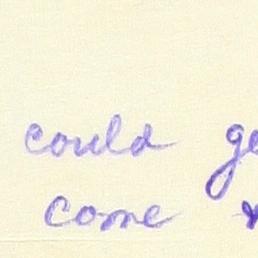 could
come